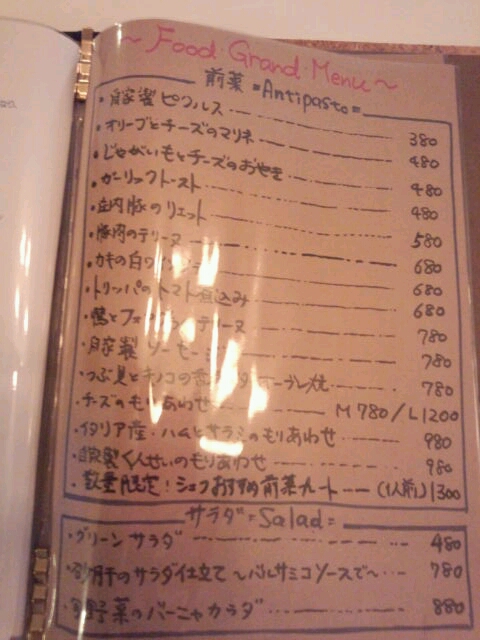 ~ Food Grand Menu ~
前菜 =Antipasto=
・自家製ピクルス 380
・オリーブとチーズのマリネ 480
・じゃがいもとチーズのおやき 480
・ガーリックトースト 480
・庄内豚のリエット 580
・豚肉のテリーヌ 680
・カキの白ワイン 680
・トリッパのトマト煮込み 680
・鴨とフォアグラのテリーヌ 780
・自家製ソーセージ 780
・つぶ貝とキノコの オーブン焼 780
・チーズのもりあわせ M780/L1200
・イタリア産・ハムとサラミのもりあわせ 980
・自家製くんせいのもりあわせ 980
・数量限定!シェフおすすめ前菜プレート (1人前)1300
サラダ =Salad=
・グリーンサラダ 480
・砂肝のサラダ仕立て ~バルサミコソースで~ 780
・野菜のバーニャカウダ 880